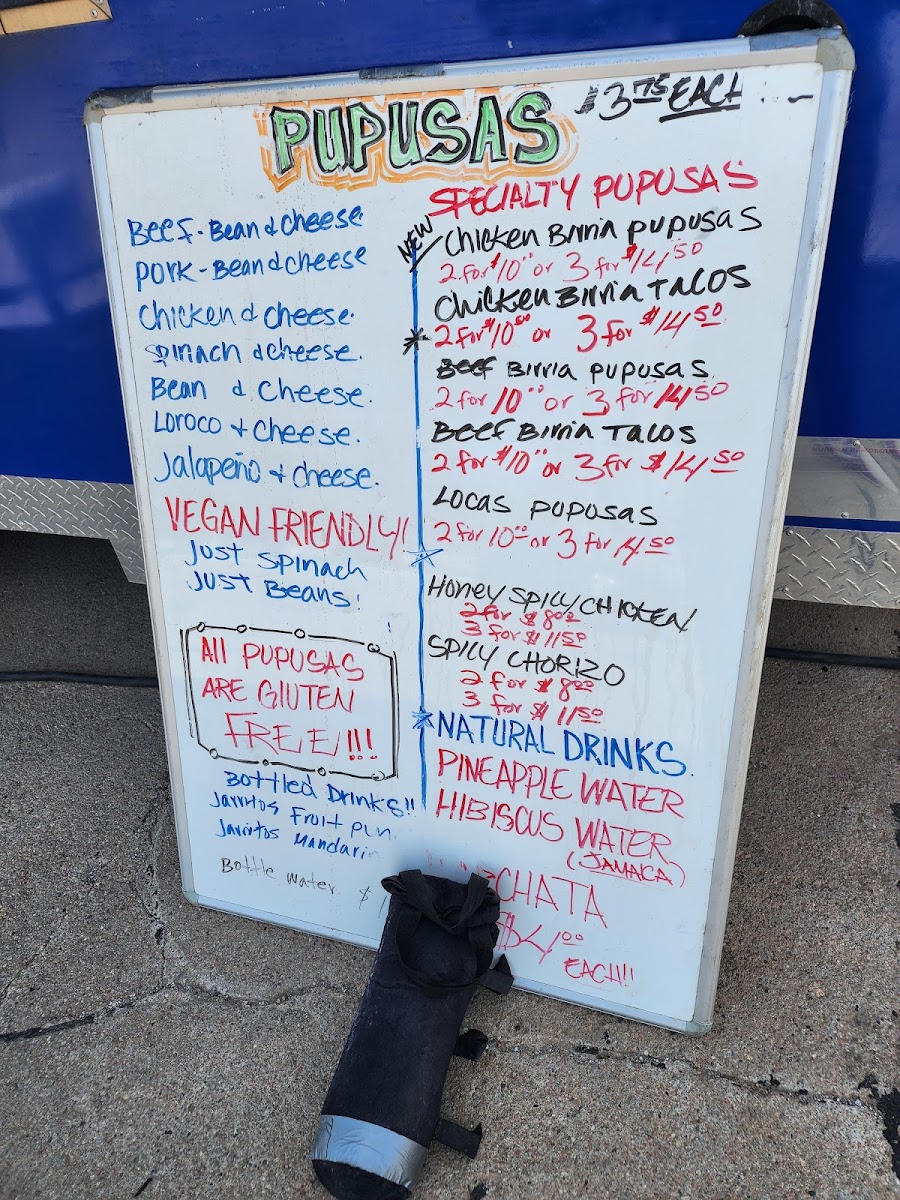 PUPUSAS
$3.75 EACH
BEEF - Bean & cheese
PORK - Bean & cheese
Chicken & cheese
Spinach & cheese.
Bean & cheese.
Loroco + cheese.
Jalapeño + cheese.
VEGAN FRIENDLY!
Just Spinach
Just Beans!
All PUPUSAS
ARE GLUTEN
FREE!!!
Bottled Drinks!!
Jarritos Fruit pun
Jarritos Mandarin
Bottle water $
SPECIALTY PUPUSAS
NEW
Chicken Birria pupusas
2 for $10°° or 3 for $14.50
Chicken Birria TACOS
2 for $10 or 3 for $14.50
Beef Birria pupusas
2 for 10°° or 3 for 14.50
Beef Birria TACOS
2 for $10°° or 3 for $14.50
LOCAS PUPUSAS
2 for 10.00 or 3 for 14.50
Honey SPICY CHICKEN
2 for $8.00
3 for $11.50
SPICY CHORIZO
2 for $8.00
3 for $11.50
NATURAL DRINKS
PINEAPPLE WATER
HIBISCUS WATER
(JAMAICA)
CHATA
$4.00
EACH!!